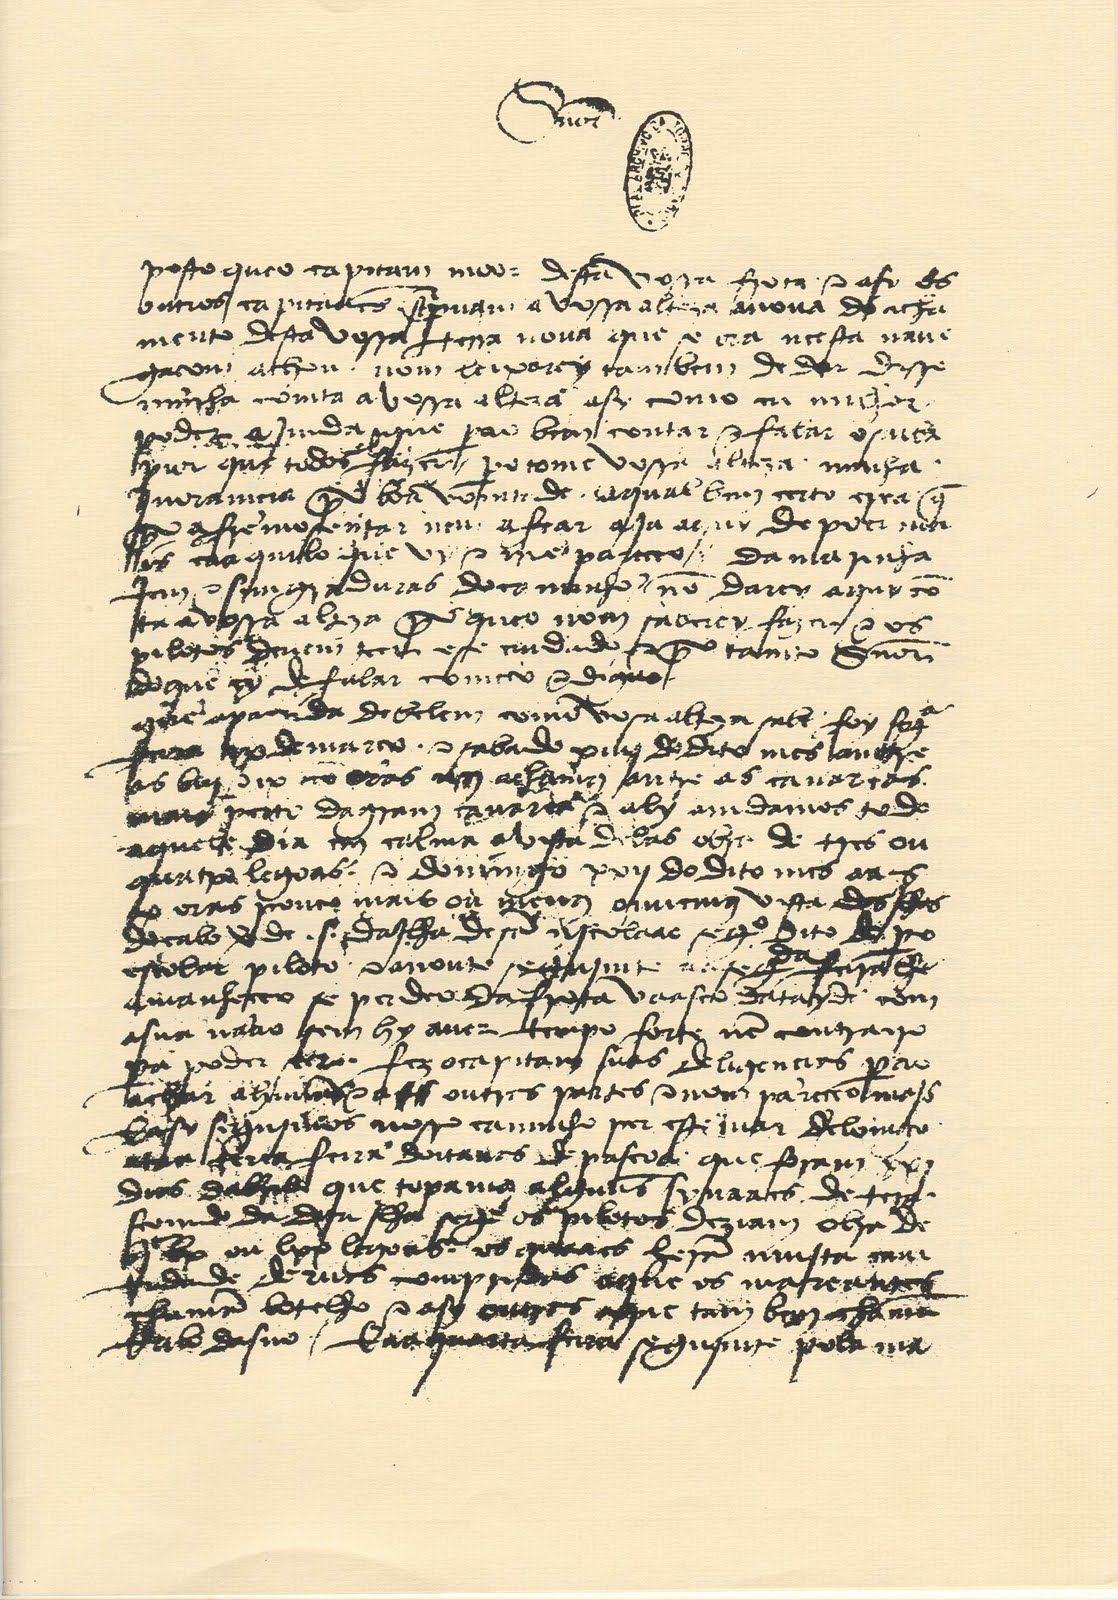 Snõr
posto queo capitam moor desta vossa frota e asy os
outros capitaães screpuam a vossa alteza anoua do acha
mento desta vossa terra noua que se ora neesta naue
gaçom achou. nom leixarey tambem de dar disso
minha comta avossa alteza asy como eu milhor
poder ajmda que pera o bem contar e falar o saiba
pior que todos fazer / pero tome vossa alteza minha
jnoramçia por boa vomtade. aqual bem çerto crea q̃
por afremosentar nem afear aja aquy de poer mais
caaquilo que vy e me pareçeo / da marinha
jem e simgraduras do caminho nõ darey aquy cõ
ta avossa alteza por queo nom saberey fazer e os
pilotos deuem teer ese cuidado e por tanto Snõr
do que ey de falar começo e diguo /
que apartida de belem como vosa alteza sabe foy segª
feira ix de março. e sabado xiiij do dito mes amtre
as biij e ix oras nos achamos antre as canareas
mais perto da gram canarea e aly amdamos todo
aquele dia em calma avista delas obra de tres ou
quatro legoas. e domingo xxij do dito mes aas
x oras pouco mais ou menos ouuemos vista das jlhas
do cabo verde .s. dajlha de sã njcolaao segº dito de pº
escolar piloto. e anoute segujmte aasegª feira lhe
amanheçeo se perdeo da frota vaasco datayde com
asua naao sem hy auer tempo forte nẽ contrairo
pera poder seer. fez ocapitam suas deligençias pera o
achar ahuũas e a outras partes e nom pareçeo majs
E asy segujmos nosso caminho per este mar delomgo
ataa terça feira doitauas de pascoa que foram xxj
dias dabril que topamos alguũs synaaes de terra
seemdo da dita jlha segº os pilotos deziam obra de
bjclx ou lxx legoas. os quaaes herã muita camtidade
de eruas compridas aque os mareantes
chamã botelho e asy outras aque tambem chamã
rrabo dasno / E aa quarta feira segujmte pola ma